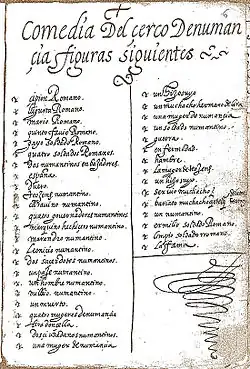 Comedia Del cerco Denuman
cia y figuras siguientes
cipion Romano.
iugurta Romano.
mario Romano.
quinto fauio Romano.
gayo soldado Romano.
quatro soldados Romanos.
Dos numantinos enbajadores.
españa.
Duero.
teogenes numantino.
corauino numantino.
quatro gouernadores numantinos
marquino hechicero numantino.
marandro numantino.
Leonicio numantino.
Dos sacerdotes numantinos.
un paje numantino.
un hombre numantino.
miluio. numantino.
un muerto.
quatro mugeres de numancia
lira donçella.
dos ciudadanos numantinos.
una muger de numancia
un hijo suyo
un muchacho hermano de lira
una muger de numancia
un soldado numantino.
guerra.
enfermedad.
hambre.
la muger de teogenes
un hijo suyo.
seruio muchacho
bariato muchacho
un numantino.
ermilio soldado Romano.
limpio soldado rromano.
La Fama.